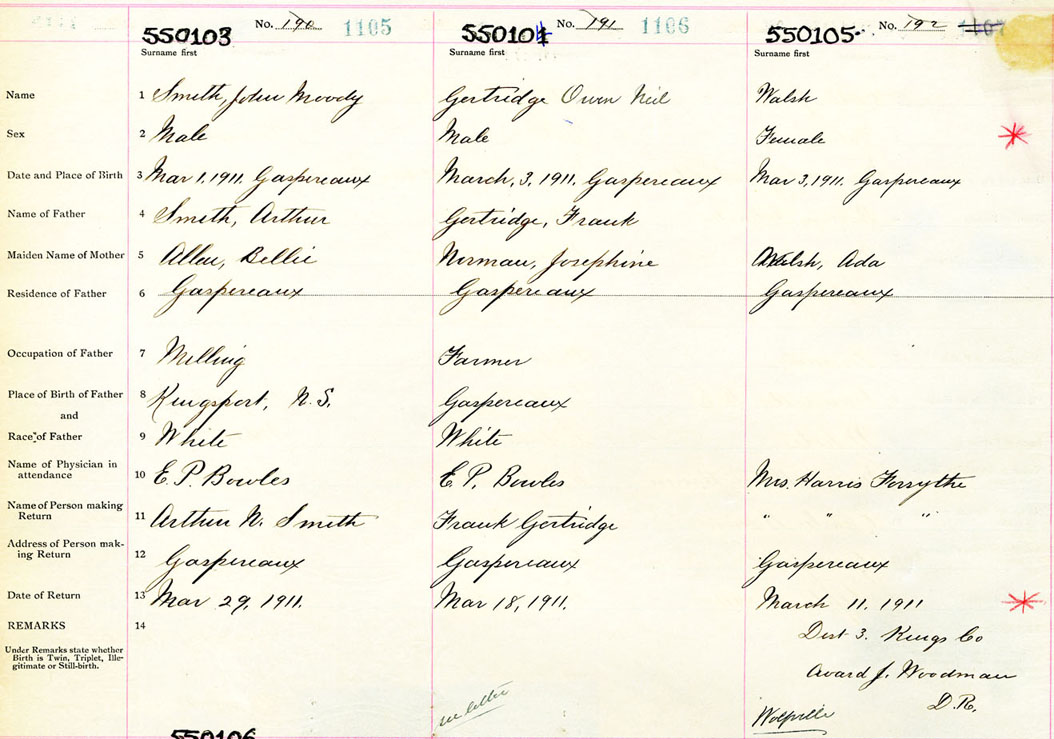 No. 190 1105 No. 191 1106 No. 192 1107
550103 550104 550105
Surname first Surname first Surname first
Name 1 Smith, John Moody Gertridge Owen Neil Walsh
Sex 2 Male Male Female
Date and Place of Birth 3 Mar 1, 1911, Gaspereaux March, 3, 1911, Gaspereaux Mar 3, 1911, Gaspereaux
Name of Father 4 Smith, Arthur Gertridge, Frank
Maiden Name of Mother 5 Allen, Bellie Norman, Josephine Walsh, Ada
Residence of Father 6 Gaspereaux Gaspereaux Gaspereaux
Occupation of Father 7 Milling Farmer
Place of Birth of Father 8 Kingsport, N.S. Gaspereaux
and
Race of Father 9 White White
Name of Physician in
attendance 10 E. P. Bowles E. P. Bowles Mrs. Harris Forsythe
Name of Person making
Return 11 Arthur N. Smith Frank Gertridge " " "
Address of Person mak-
ing Return 12 Gaspereaux Gaspereaux Gaspereaux
Date of Return 13 Mar 29, 1911. Mar 18, 1911. March 11, 1911
REMARKS 14
Dist 3. Kings Co
Under Remarks state whether
Birth is Twin, Triplet, Ille-
gitimate or Still-birth.
Avard J. Woodman
D.R.
Wolfville
550106